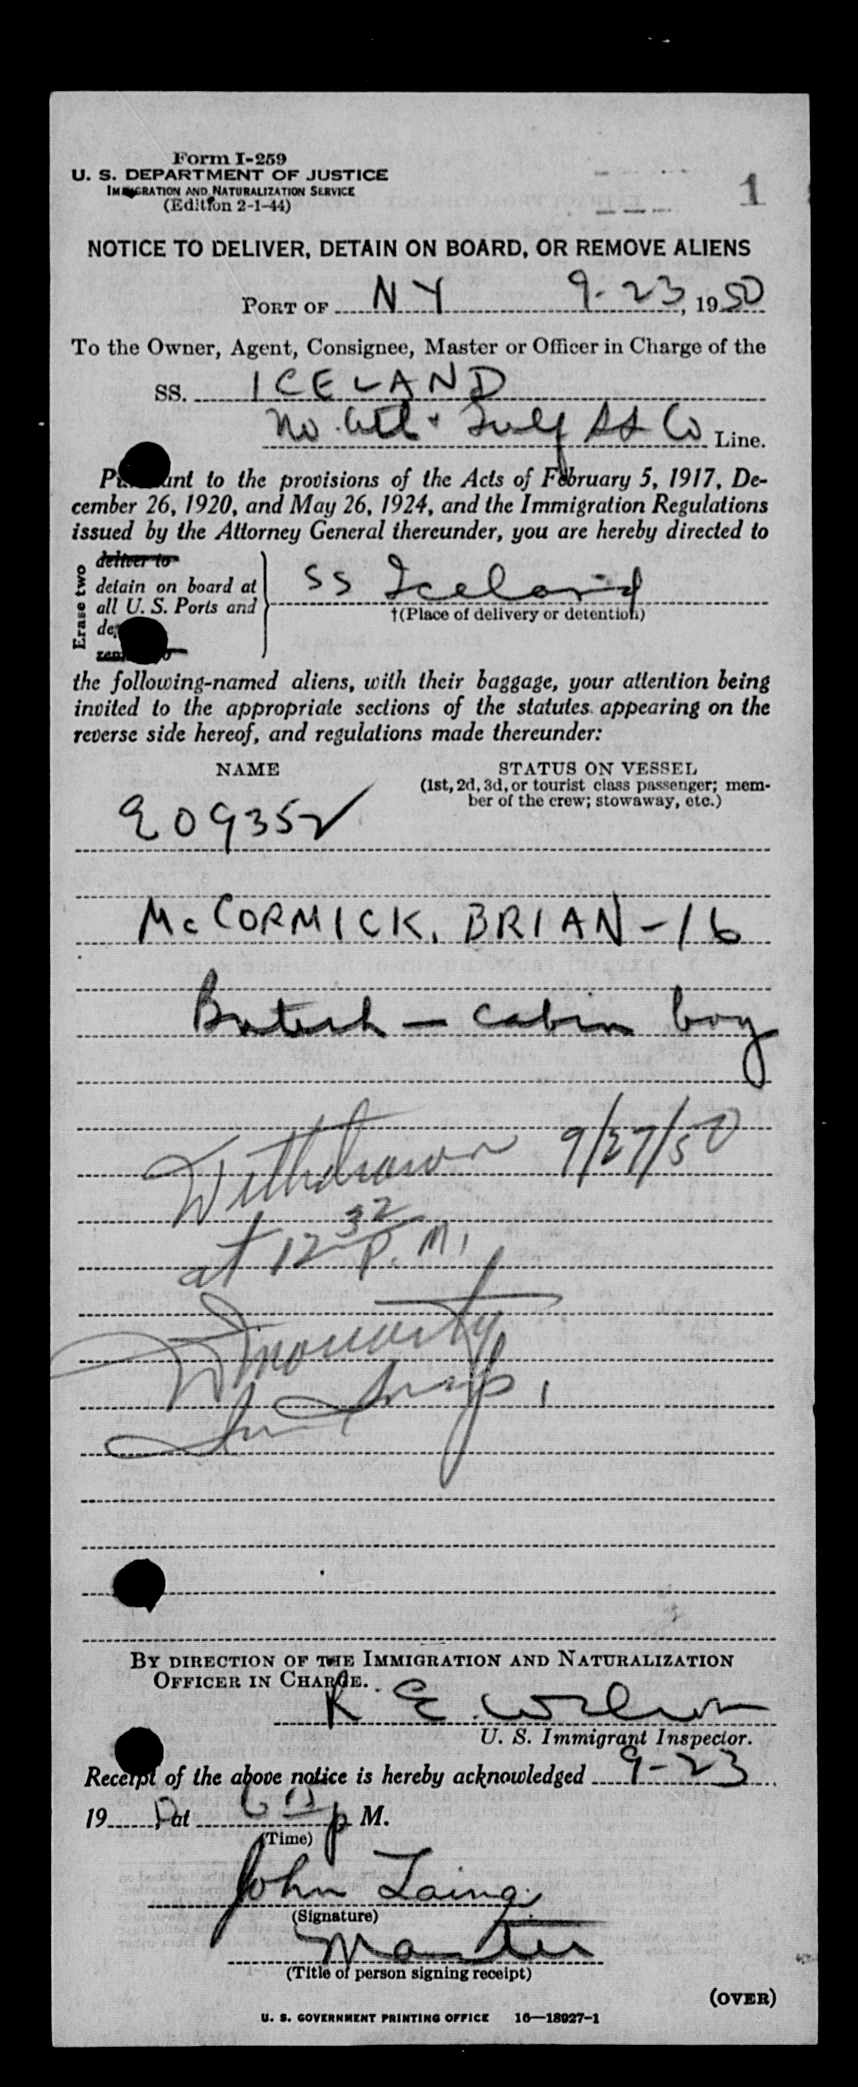 Form I-259
U. S. DEPARTMENT OF JUSTICE
IMMIGRATION AND NATURALIZATION SERVICE
(Edition 2-1-44)
1
NOTICE TO DELIVER, DETAIN ON BOARD, OR REMOVE ALIENS
PORT OF NY 9-23, 1950
To the Owner, Agent, Consignee, Master or Officer in Charge of the
SS. ICELAND
No. Atl & Gulf SS Co Line.
Pursuant to the provisions of the Acts of February 5, 1917, De-
cember 26, 1920, and May 26, 1924, and the Immigration Regulations
issued by the Attorney General thereunder, you are hereby directed to
Erase two
deliver to
detain on board at
all U. S. Ports and
SS Iceland
†(Place of delivery or detention)
the following-named aliens, with their baggage, your attention being
invited to the appropriate sections of the statutes appearing on the
reverse side hereof, and regulations made thereunder:
NAME
STATUS ON VESSEL
(1st, 2d, 3d, or tourist class passenger; mem-
ber of the crew; stowaway, etc.)
McCORMICK, BRIAN - 16
British - cabin boy
Withdrawn 9/27/50
at 12 32 P.M.
BY DIRECTION OF THE IMMIGRATION AND NATURALIZATION
OFFICER IN CHARGE.
R E. Wilson
U. S. Immigrant Inspector.
Receipt of the above notice is hereby acknowledged 9-23
19 at M.
(Time)
John Laing
(Signature)
Master
(Title of person signing receipt)
(OVER)
U. S. GOVERNMENT PRINTING OFFICE 16—18927-1